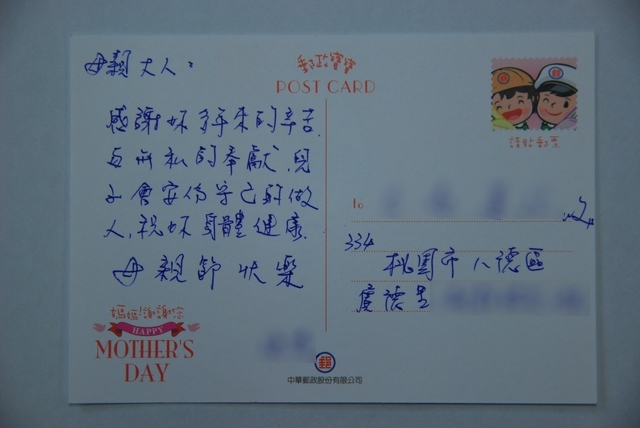 母親大人：
感謝妳多年來的辛苦
与無私的奉獻,兒
子會安份守己的做
人,祝妳身體健康
母親節快樂
媽媽!謝謝您
HAPPY
MOTHER'S
DAY
郵政寶寶
POST CARD
請貼郵票
To
收
334
桃園市八德區
廣德里
郵
中華郵政股份有限公司